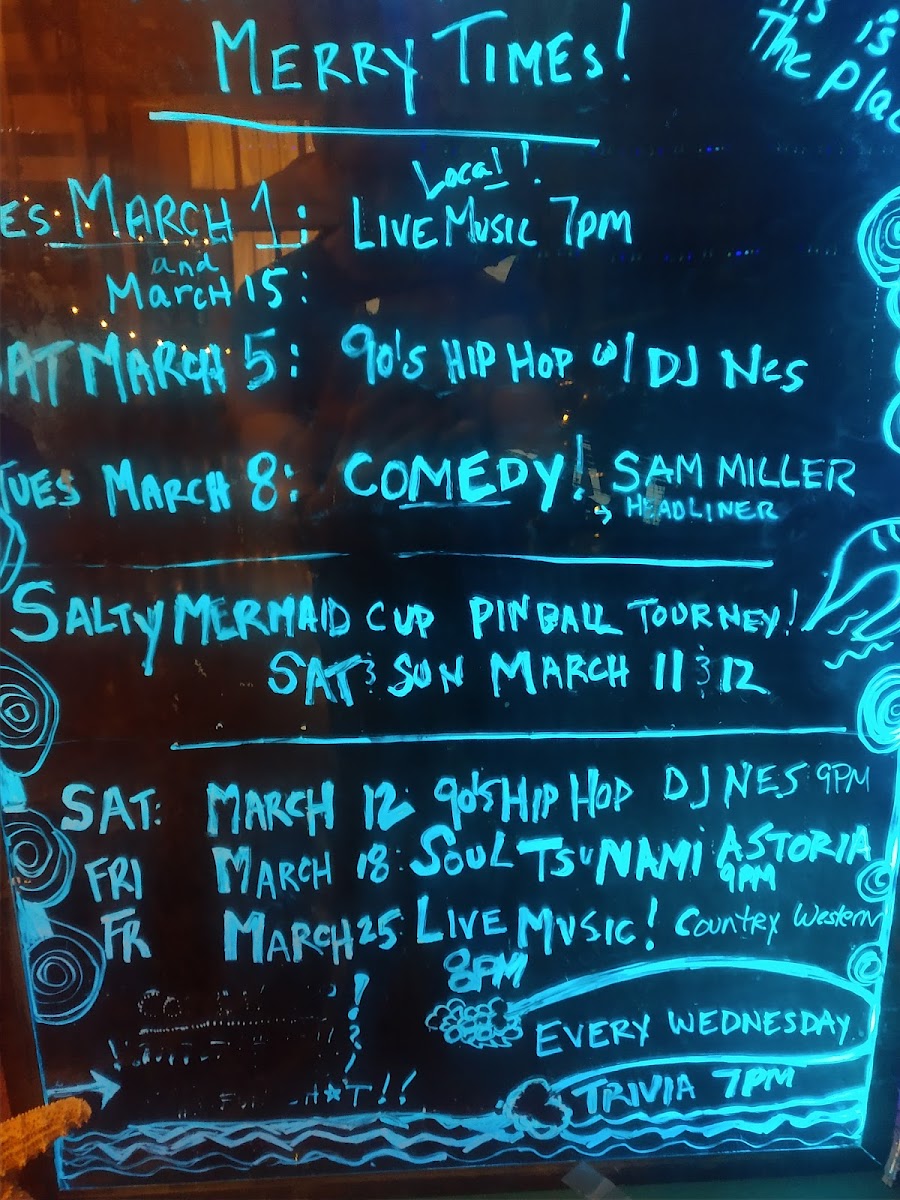 MERRY TIMES!
is
The plac
Local!
ES MARCH 1: LIVE MUSIC 7pm
and
MARCH 15:
SAT MARCH 5: 90's HIP HOP w/ DJ NES
TUES MARCH 8: COMEDY! SAM MILLER
→ HEADLINER
SALTY MERMAID CUP PINBALL TOURNEY!
SAT & SUN MARCH 11 & 12
SAT: MARCH 12: 90's HIP HOP DJ NES 9PM
FRI MARCH 18: SOUL TSUNAMI ASTORIA
9PM
FR MARCH 25 LIVE MUSIC! Country Western
8PM
EVERY WEDNESDAY
TRIVIA 7PM